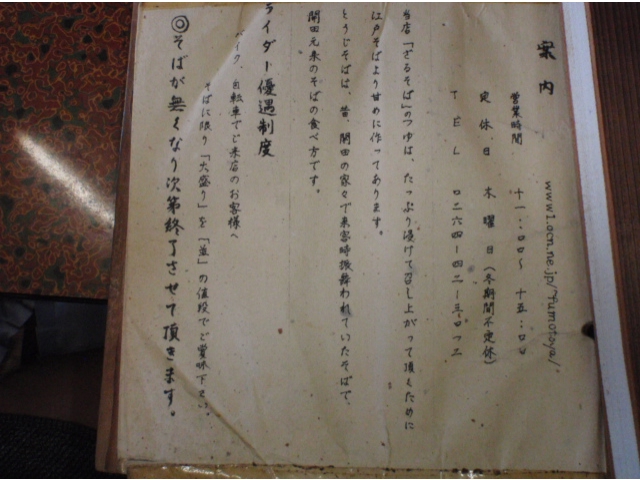 案内
www1.ocn.ne.jp/~fumotoya/
営業時間 十一:〇〇〜十五:〇〇
定休日 木曜日(冬期間不定休)
TEL 〇二六四ー四二ー三〇一二
当店「ざるそば」のつゆは、たっぷり浸けて召し上がって頂くために
江戸そばより甘めに作ってあります。
とうじそばは、昔、開田の家々で来客時振舞われていたそばで、
開田元来のそばの食べ方です。
ライダー優遇制度
バイク、自転車でご来店のお客様へ
そばに限り「大盛り」を「並」の値段でご賞味下さい。
◎そばが無くなり次第終了させて頂きます。